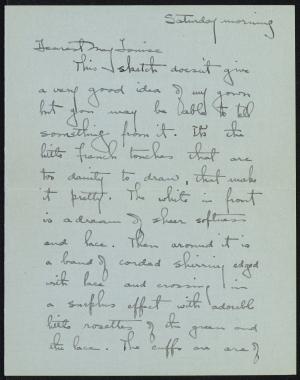 Saturday morning
Dearest May Louise
This sketch doesn't give
a very good idea of my gown
but you may be able to tell
something from it. It's the
little french touches that are
too dainty to draw, that make
it pretty. The white in front
is a dream of sheer softness
and lace. Then around it is
a band of corded shirring edged
with lace and crossing in
a surplus effect with adorable
little rosettes of the green and
the lace. The cuffs are of